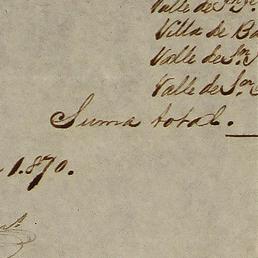 Valle de Sn. J
Villa de Ba
Valle de Sn.
Valle de Sor. S
Suma total.
1.870.